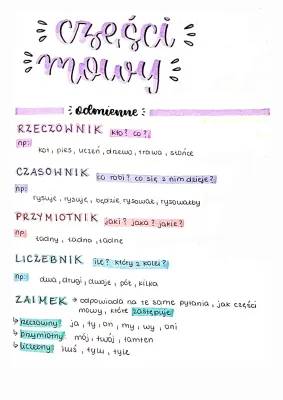 części
mowy
odmienne
RZECZOWNIK kto? co?
np:
kot, pies, uczeń, drzewo, trawa, słońce
CZASOWNIK co robi? co się z nim dzieje?
np:
rysuje, rysuję, będzie rysować, rysowałby
PRZYMIOTNIK jaki? jaka? jakie?
np:
ładny, ładna, ładne
LICZEBNIK ile? który z kolei?
np:
dwa, drugi, dwoje, pół, kilka
ZAIMEK → odpowiada na te same pytania, jak części
mowy, które zastępuje
↳ rzeczowny: ja, ty, on, my, wy, oni
↳ przymiotny: mój, twój, tamten
↳ liczebny: tyle